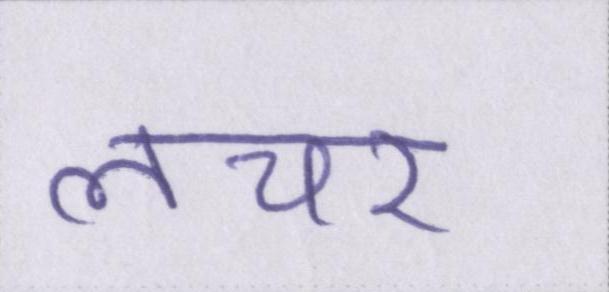 लचर